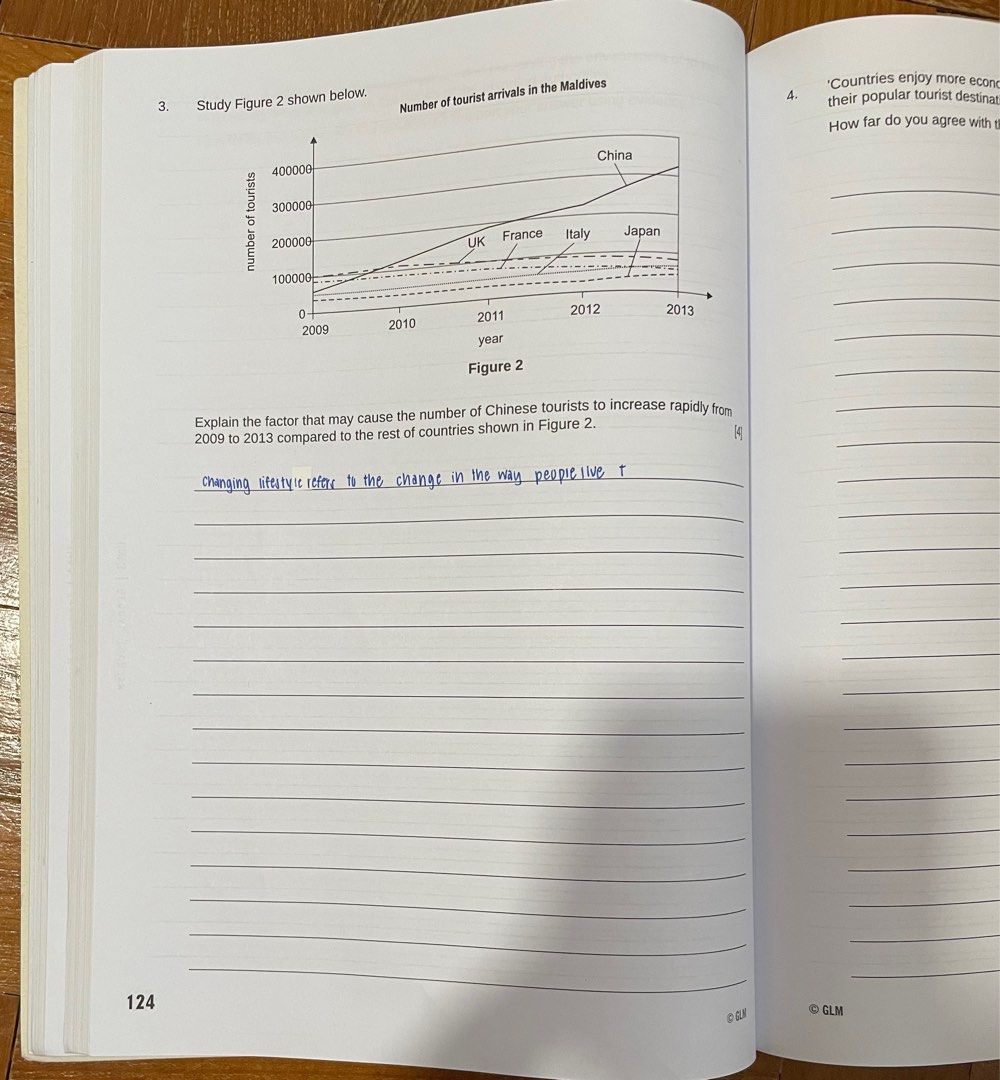 3. Study Figure 2 shown below.
Number of tourist arrivals in the Maldives
number of tourists
400000
300000
200000
100000
0
China
UK
France
Italy
Japan
2009
2010
2011
2012
2013
year
Figure 2
Explain the factor that may cause the number of Chinese tourists to increase rapidly from
2009 to 2013 compared to the rest of countries shown in Figure 2.
[4]
changing lifestyle refers to the change in the way people live t
124
© GLM
4. 'Countries enjoy more econ
their popular tourist destinat
How far do you agree with t
© GLM